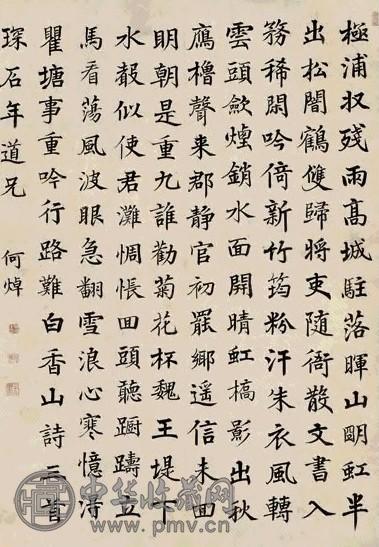 極浦収殘雨高城駐落暉山眀虹半
出松闇鶴雙歸將吏隨衙散文書入
務稀閑吟倚新竹筠粉汙朱衣風轉
雲頭斂煙銷水面開晴虹橋影出秋
鴈櫓聲来郡静官初罷鄉遥信未回
眀朝是重九誰勸菊花杯魏王堤下
水聲似使君灘惆悵回頭聽躕躊立
馬看蕩風波眼急翻雪浪心寒憶得
瞿塘事重吟行路難白香山詩三首
琛石年道兄 何焯
中华收藏网
www.pmv.cn